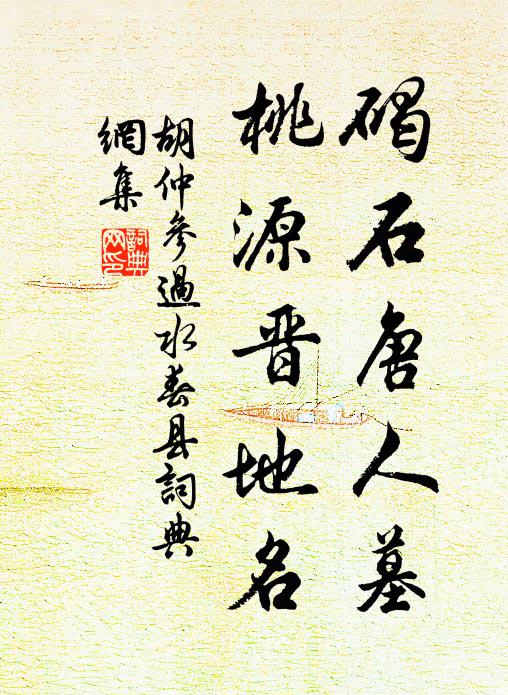 碣石唐人墓
桃源晋地名
胡仲参過永春县詞典
網集
詞典
网印